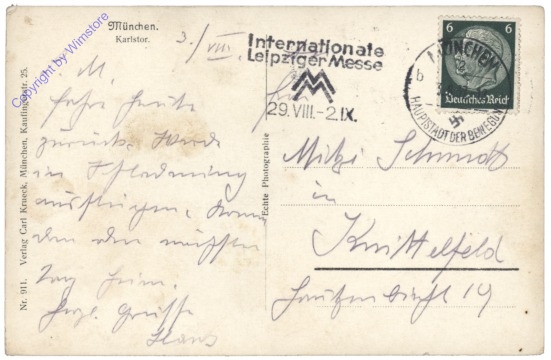 München.
Karlstor.
3./VIII.
Internationale
Leipziger Messe
29. VIII.-2. IX.
6 6
Deutsches Reich
MÜNCHEN
b
HAUPTSTADT DER BEWEGUNG
Copyright by Wimstore
Nr. 911. Verlag Carl Krueck, München, Kaufingerstr. 25.
Echte Photographie
M.
fahre heute
zurück. Werde
in
ausfliegen,
den
Tag heim.
Herzl. Grüsse
Hans
Mitzi Schmidt
in
Knittelfeld
19